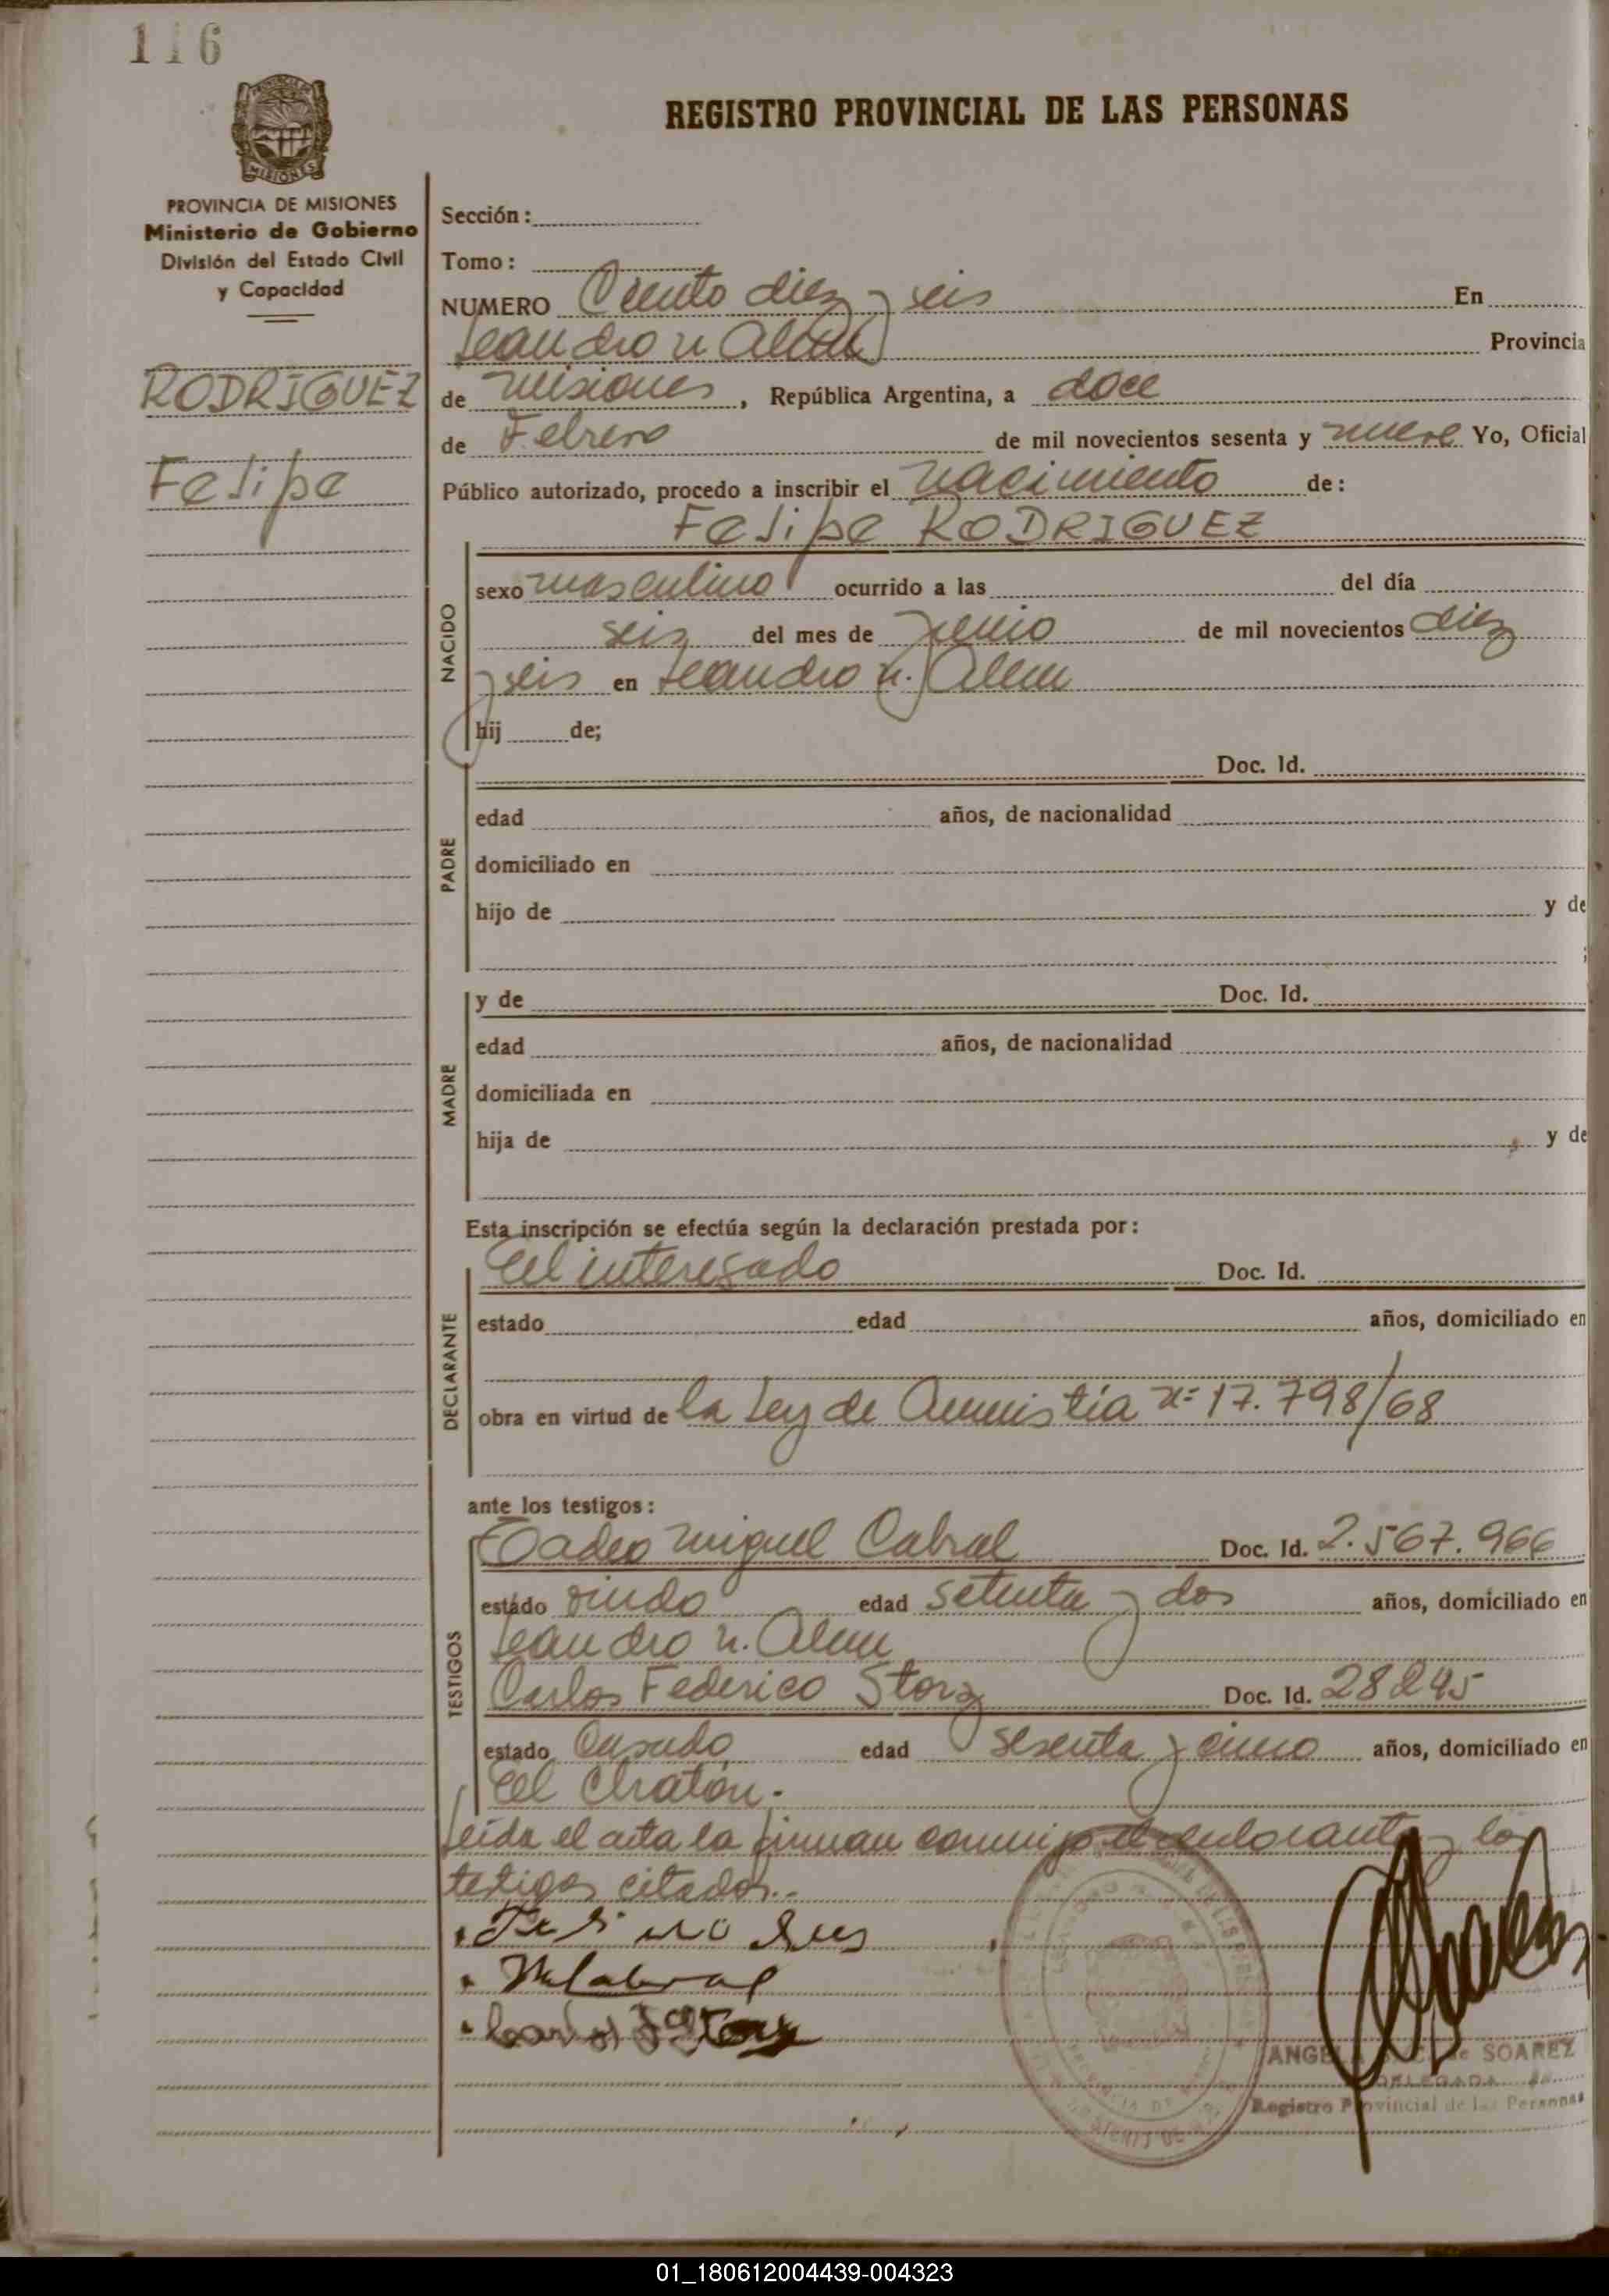 116
PROVINCIA DE MISIONES
Ministerio de Gobierno
División del Estado Civil
y Capacidad
RODRIGUEZ
Felipe
REGISTRO PROVINCIAL DE LAS PERSONAS
Sección:
Tomo:
NUMERO Ciento diez y seis En
Leandro N Alem Provincia
de Misiones, República Argentina, a doce
de Febrero de mil novecientos sesenta y nueve Yo, Oficial
Público autorizado, procedo a inscribir el nacimiento de:
Felipe RODRIGUEZ
NACIDO
sexo masculino ocurrido a las del día
seis del mes de Junio de mil novecientos diez
y seis en Leandro N. Alem
hij de;
PADRE
Doc. Id.
edad años, de nacionalidad
domiciliado en
hijo de y de
;
MADRE
y de Doc. Id.
edad años, de nacionalidad
domiciliada en
hija de y de
Esta inscripción se efectúa según la declaración prestada por:
DECLARANTE
El interesado Doc. Id.
estado edad años, domiciliado en
obra en virtud de la Ley de Amnistia n= 17.798/68
ante los testigos:
TESTIGOS
Tadeo Miguel Cabral Doc. Id. 2.567.966
estado viudo edad setenta y dos años, domiciliado en
Leandro N. Alem
Carlos Federico Storz Doc. Id. 28295
estado Casado edad sesenta y cinco años, domiciliado en
El Chatón.-
Leida el acta la firman conmigo el declarante y los
testigos citados.-
ANGELA de SOAREZ
DELEGADA
Registro Provincial de las Personas
01_180612004439-004323